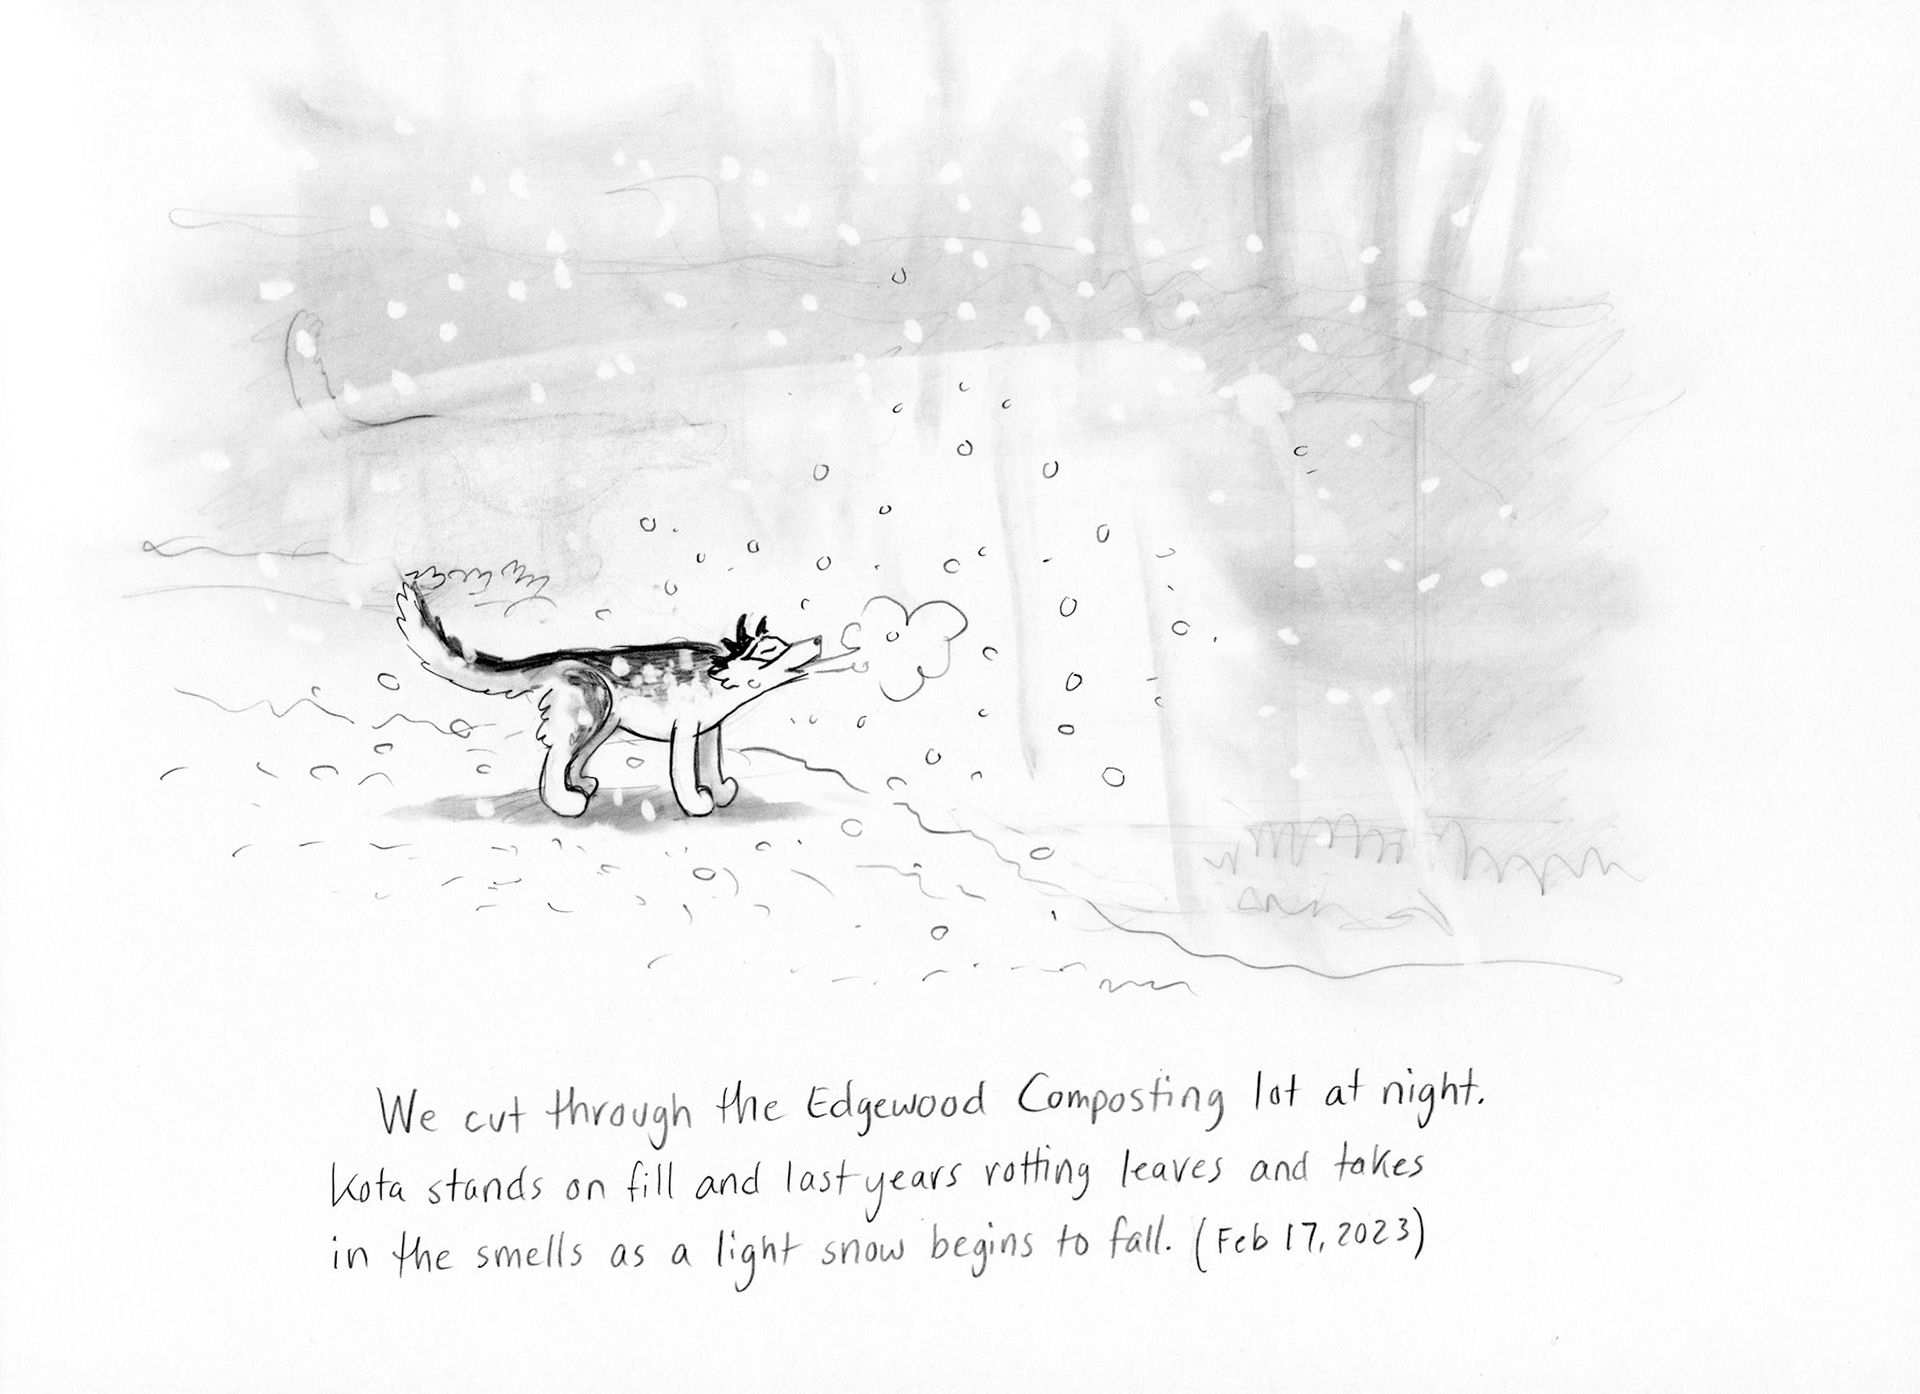 We cut through the Edgewood Composting lot at night.
Kota stands on fill and last years rotting leaves and takes
in the smells as a light snow begins to fall. (Feb 17, 2023)